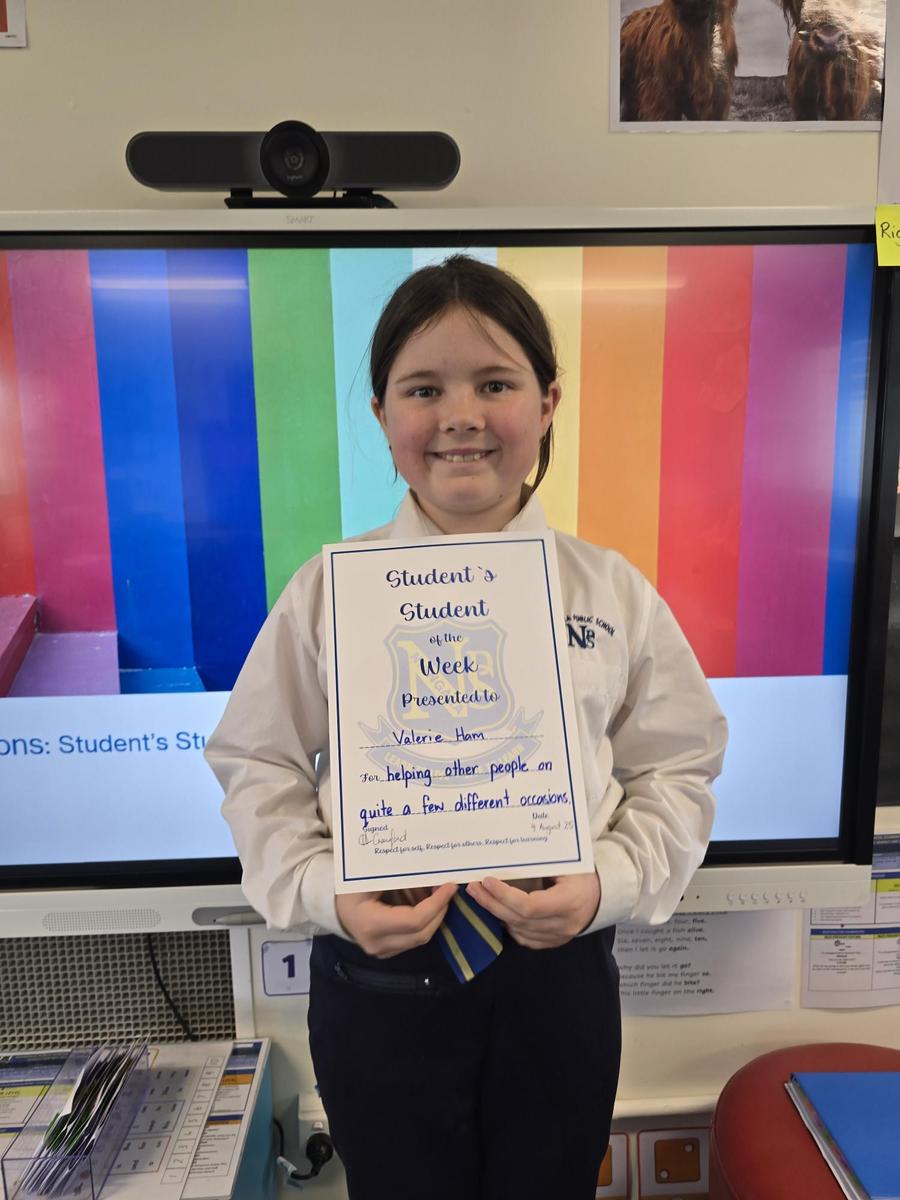 SMART
Rig
Student`s
Student
of the
Week
Presented to
Valerie Ham
For helping other people on
quite a few different occasions.
Signed
Date
Crawford
9 August 25
Respect for self. Respect for others. Respect for learning
PUBLIC SCHOOL
NPS
ons: Student's Stu
1
Once I caught a fish alive.
Six, seven, eight, nine, ten,
then I let it go again.
Why did you let it go?
Because he bit my finger so.
Which finger did he bite?
This little finger on the right.